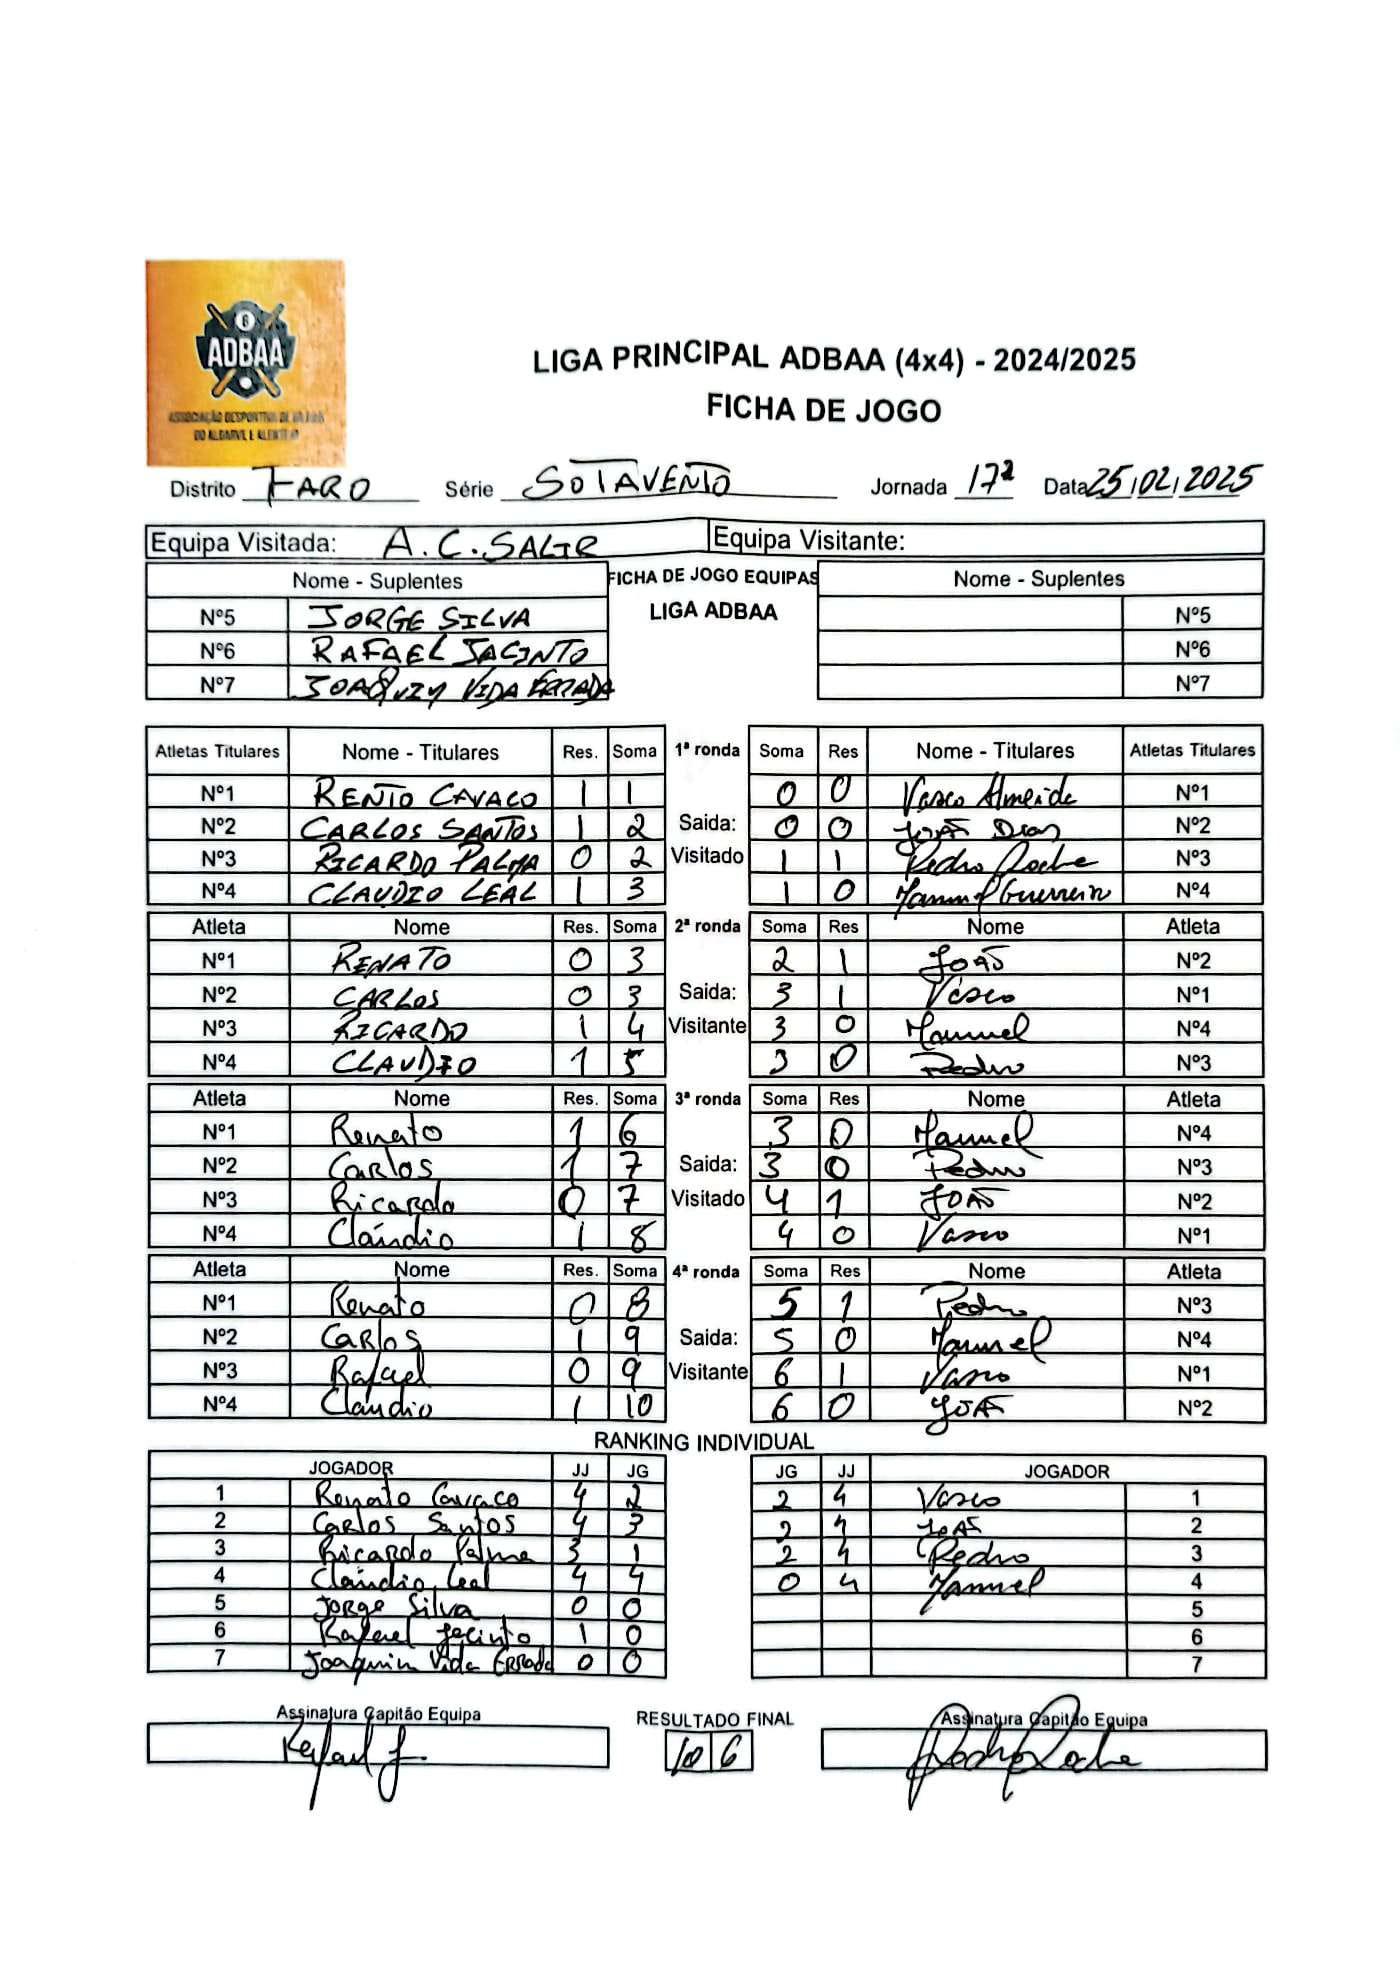 6
ADBAA
ASSOCIAÇÃO DESPORTIVA DE BILHAR
DO ALGARVE E ALENTEJO
LIGA PRINCIPAL ADBAA (4x4) - 2024/2025
FICHA DE JOGO
Distrito FARO Série SOTAVENTO Jornada 17ª Data 25/02/2025
Equipa Visitada: A.C. SALIR Equipa Visitante:
Nome - Suplentes FICHA DE JOGO EQUIPAS Nome - Suplentes
Nº5 JORGE SILVA LIGA ADBAA Nº5
Nº6 RAFAEL JACINTO Nº6
Nº7 JOAQUIM VIDA ERRADA Nº7
Atletas Titulares Nome - Titulares Res. Soma 1ª ronda Soma Res Nome - Titulares Atletas Titulares
Nº1 RENTO CAVACO 1 1 0 0 Vasco Almeida Nº1
Nº2 CARLOS SANTOS 1 2 Saida: 0 0 JOÃO Dias Nº2
Nº3 RICARDO PALMA 0 2 Visitado 1 1 Pedro Rocha Nº3
Nº4 CLAUDIO LEAL 1 3 1 0 Manuel Guerreiro Nº4
Atleta Nome Res. Soma 2ª ronda Soma Res Nome Atleta
Nº1 RENATO 0 3 2 1 JOÃO Nº2
Nº2 CARLOS 0 3 Saida: 3 1 Vasco Nº1
Nº3 RICARDO 1 4 Visitante 3 0 Manuel Nº4
Nº4 CLAUDIO 1 5 3 0 Pedro Nº3
Atleta Nome Res. Soma 3ª ronda Soma Res Nome Atleta
Nº1 Renato 1 6 3 0 Manuel Nº4
Nº2 Carlos 1 7 Saida: 3 0 Pedro Nº3
Nº3 Ricardo 0 7 Visitado 4 1 JOÃO Nº2
Nº4 Cláudio 1 8 4 0 Vasco Nº1
Atleta Nome Res. Soma 4ª ronda Soma Res Nome Atleta
Nº1 Renato 0 8 5 1 Pedro Nº3
Nº2 Carlos 1 9 Saida: 5 0 Manuel Nº4
Nº3 Rafael 0 9 Visitante 6 1 Vasco Nº1
Nº4 Claudio 1 10 6 0 JOÃO Nº2
RANKING INDIVIDUAL
JOGADOR JJ JG JG JJ JOGADOR
1 Renato Cavaco 4 2 2 4 Vasco 1
2 Carlos Santos 4 3 2 4 JOÃO 2
3 Ricardo Palma 3 1 2 4 Pedro 3
4 Cláudio Leal 4 4 0 4 Manuel 4
5 Jorge Silva 0 0 5
6 Rafael Jacinto 1 0 6
7 Joaquim Vida Errada 0 0 7
Assinatura Capitão Equipa RESULTADO FINAL Assinatura Capitão Equipa
Rafael J 10 6 Pedro Rocha